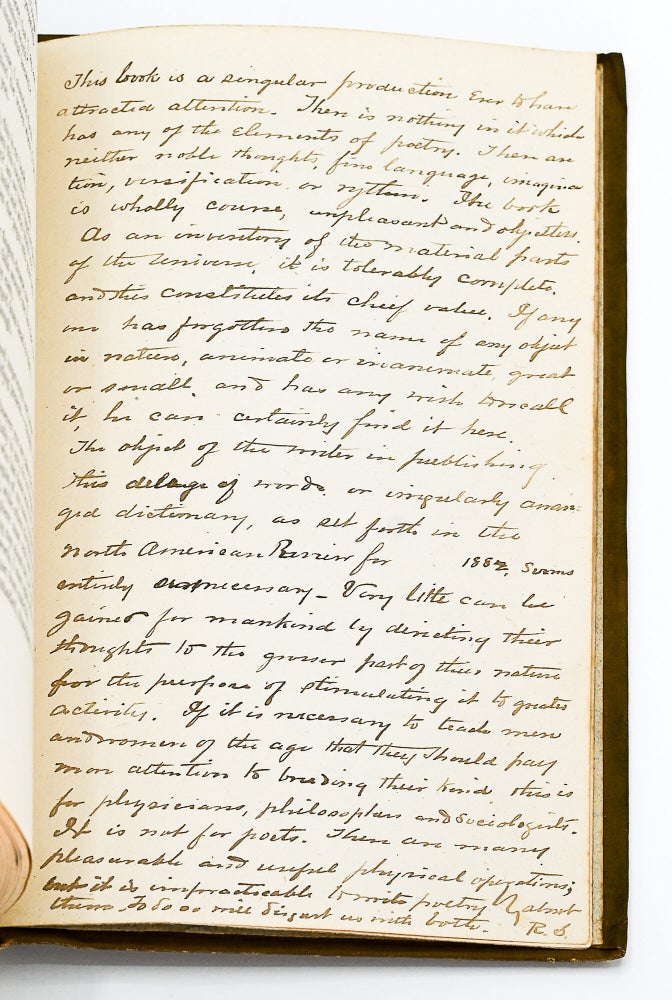 This book is a singular production Ever to have
attracted attention. There is nothing in it which
has any of the Elements of poetry. There are
neither noble thoughts, fine language, imagina
tion, versification or rythm. The book
is wholly course, unpleasant and objectless.
As an inventory of the material parts
of the Universe, it is tolerably complete.
and this constitutes its chief value. If any
one has forgotten the name of any object
in nature, animate or inanimate, great
or small, and has any wish to recall
it, he can certainly find it here.
The object of the writer in publishing
this deluge of words, or irregularly arran-
ged dictionary, as set forth in the
North American Review for 1882, Seems
entirely unnecessary - Very little can be
gained for mankind by directing their
thoughts to the grosser part of their nature
for the purpose of stimulating it to greater
activity. If it is necessary to teach men
and women of the age that they should pay
more attention to breeding their kind, this is
for physicians, philosophers and sociologists.
It is not for poets. There are many
pleasurable and useful physical operations;
but it is impracticable to write poetry about
them. To do so will disgust us with both.
R. S.